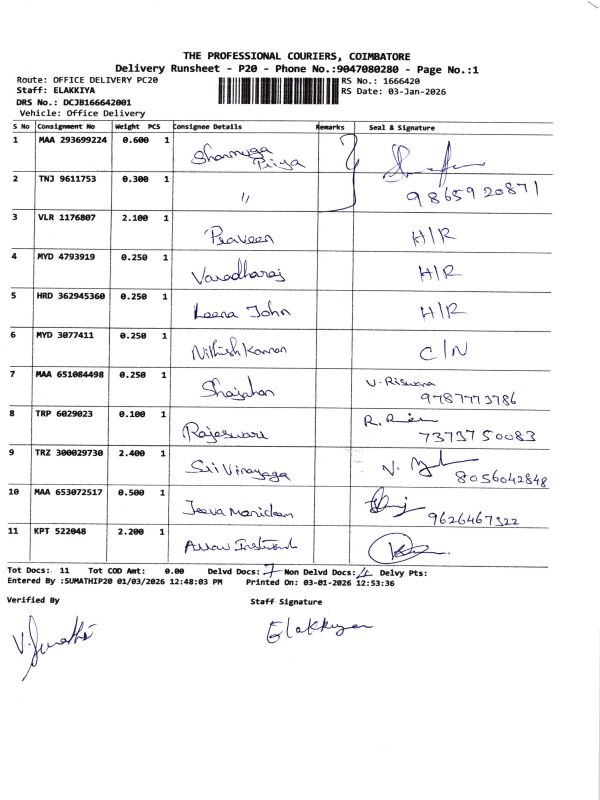 THE PROFESSIONAL COURIERS, COIMBATORE
Delivery Runsheet - P20 - Phone No.:9047080280 - Page No.:1
Route: OFFICE DELIVERY PC20 RS No.: 1666420
Staff: ELAKKIYA RS Date: 03-Jan-2026
DRS No.: DCJB166642001
Vehicle: Office Delivery
S No Consignment No Weight PCS Consignee Details Remarks Seal & Signature
1 MAA 293699224 0.600 1 Shanmuga Priya
2 TNJ 9611753 0.300 1 " 9865920871
3 VLR 1176807 2.100 1 Praveen H/R
4 MYD 4793919 0.250 1 Varadharaj H/R
5 HRD 362945360 0.250 1 Leena John H/R
6 MYD 3077411 0.250 1 Nithish Kannan C/N
7 MAA 651084498 0.250 1 Shajahan V. Riswana 9787773786
8 TRP 6029023 0.100 1 Rajeswari R. 7373750083
9 TRZ 300029730 2.400 1 Sri Vinayaga N. 8056042848
10 MAA 653072517 0.500 1 Jeeva 9626467322
11 KPT 522048 2.200 1
Tot Docs: 11 Tot COD Amt: 0.00 Delvd Docs: 7 Non Delvd Docs: 4 Delvy Pts:
Entered By :SUMATHIP20 01/03/2026 12:48:03 PM Printed On: 03-01-2026 12:53:36
Verified By Staff Signature
V. Sumathi Elakkiya